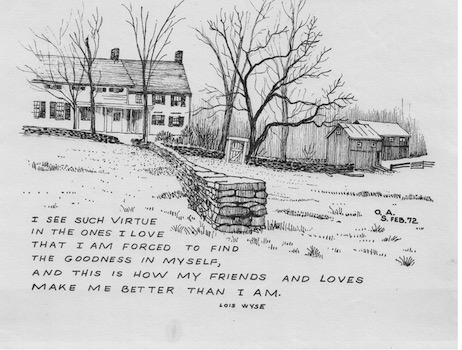 O.A.
S. FEB. 72
I SEE SUCH VIRTUE
IN THE ONES I LOVE
THAT I AM FORCED TO FIND
THE GOODNESS IN MYSELF,
AND THIS IS HOW MY FRIENDS AND LOVES
MAKE ME BETTER THAN I AM.
LOIS WYSE